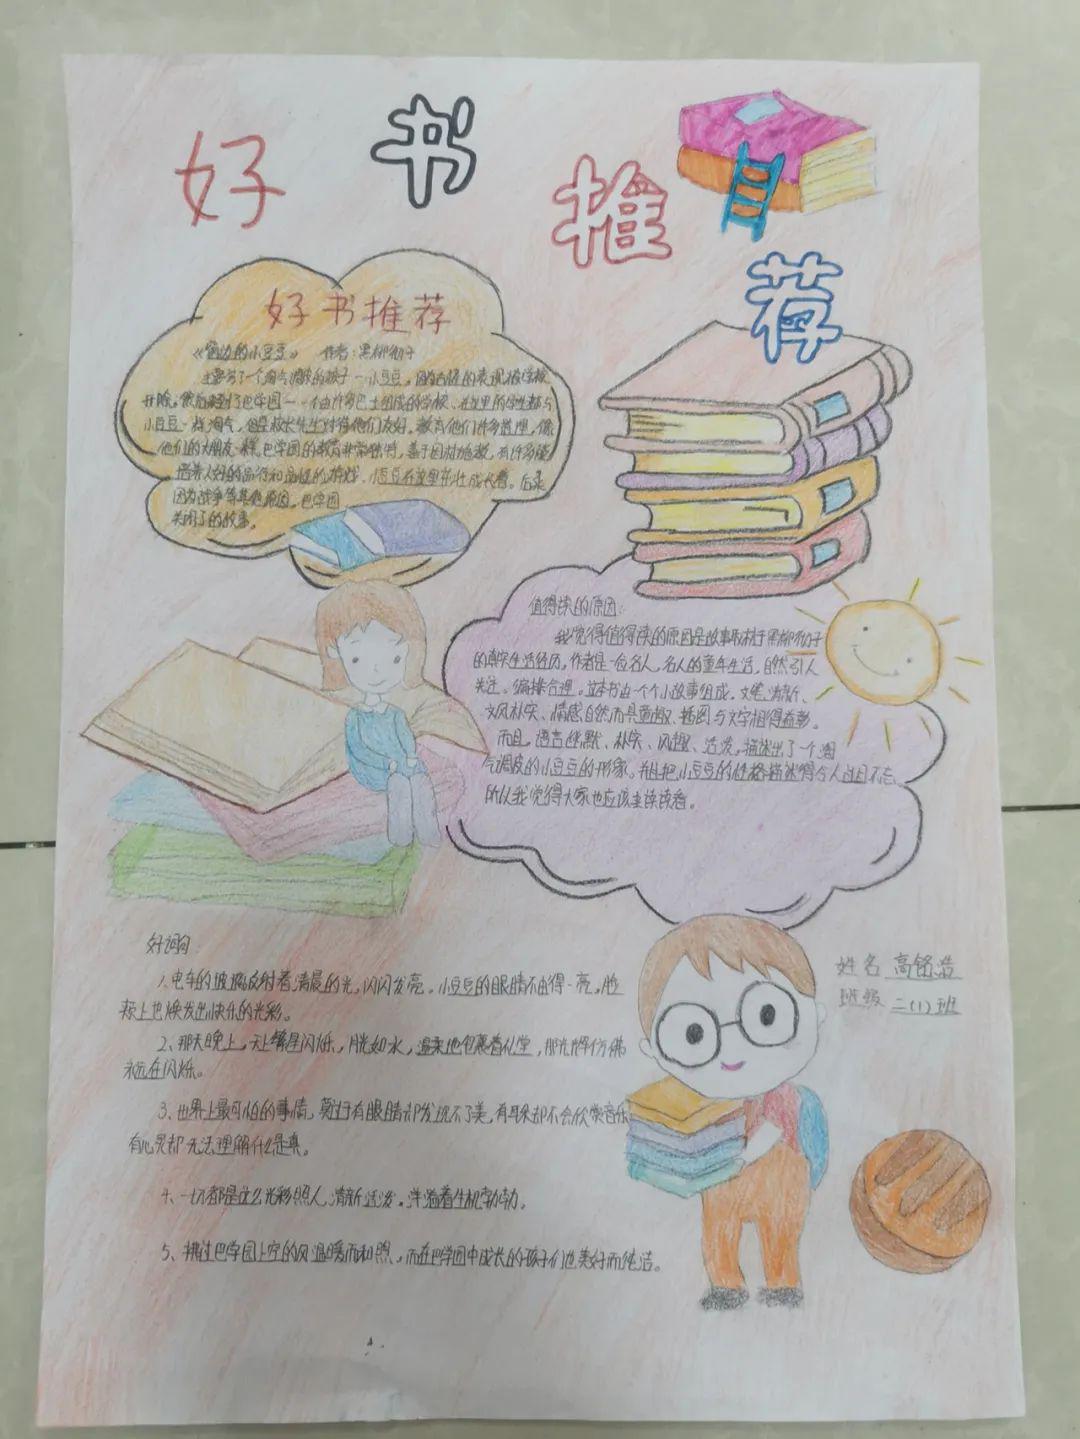 好书推荐
好书推荐
《窗边的小豆豆》 作者：黑柳彻子
主要写了一个淘气调皮的孩子一小豆豆，因为古怪的表现被学校
开除，然后来到了巴学园一一个由许多巴士组成的学校、在这里的学生都与
小豆豆一样淘气，但是校长先生对待他们友好。教育他们许多道理，像
他们的大朋友一样，巴学园的教育非常独特，基于因材施教，有许多能
培养人好的品行和品性的游戏、小豆豆在这里茁壮成长着。后来
因为战争等其他原因，巴学园
关闭了的故事。
值得读的原因：
我觉得值得读的原因是故事取材于黑柳彻子
的真实生活经历，作者是一位名人，名人的童年生活，自然引人
关注。编排合理。这本书由一个个小故事组成，文笔清新、
文风朴实、情感自然而具童趣、插图与文字相得益彰。
而且，语言幽默、朴实、风趣、活泼，描述出了一个淘
气调皮的小豆豆的形象。并且把小豆豆的性格描述得令人过目不忘，
所以我觉得大家也应该去读读看。
好词句：
1、电车的玻璃反射着清晨的光，闪闪发亮。小豆豆的眼睛不由得一亮，脸
颊上也焕发出快乐的光彩。
2、那天晚上，天上繁星闪烁，月光如水，温柔地包裹着礼堂，那光辉仿佛
永远在闪烁。
3、世界上最可怕的事情，莫过于有眼睛却发现不了美，有耳朵却不会欣赏音乐
有心灵却无法理解什么是真。
4、一切都是这么光彩照人，清新活泼。洋溢着生机勃勃。
5、拂过巴学园上空的风温暖而和煦，而在巴学园中成长的孩子们也美好而纯洁。
姓名 高铭浩
班级 二(1)班